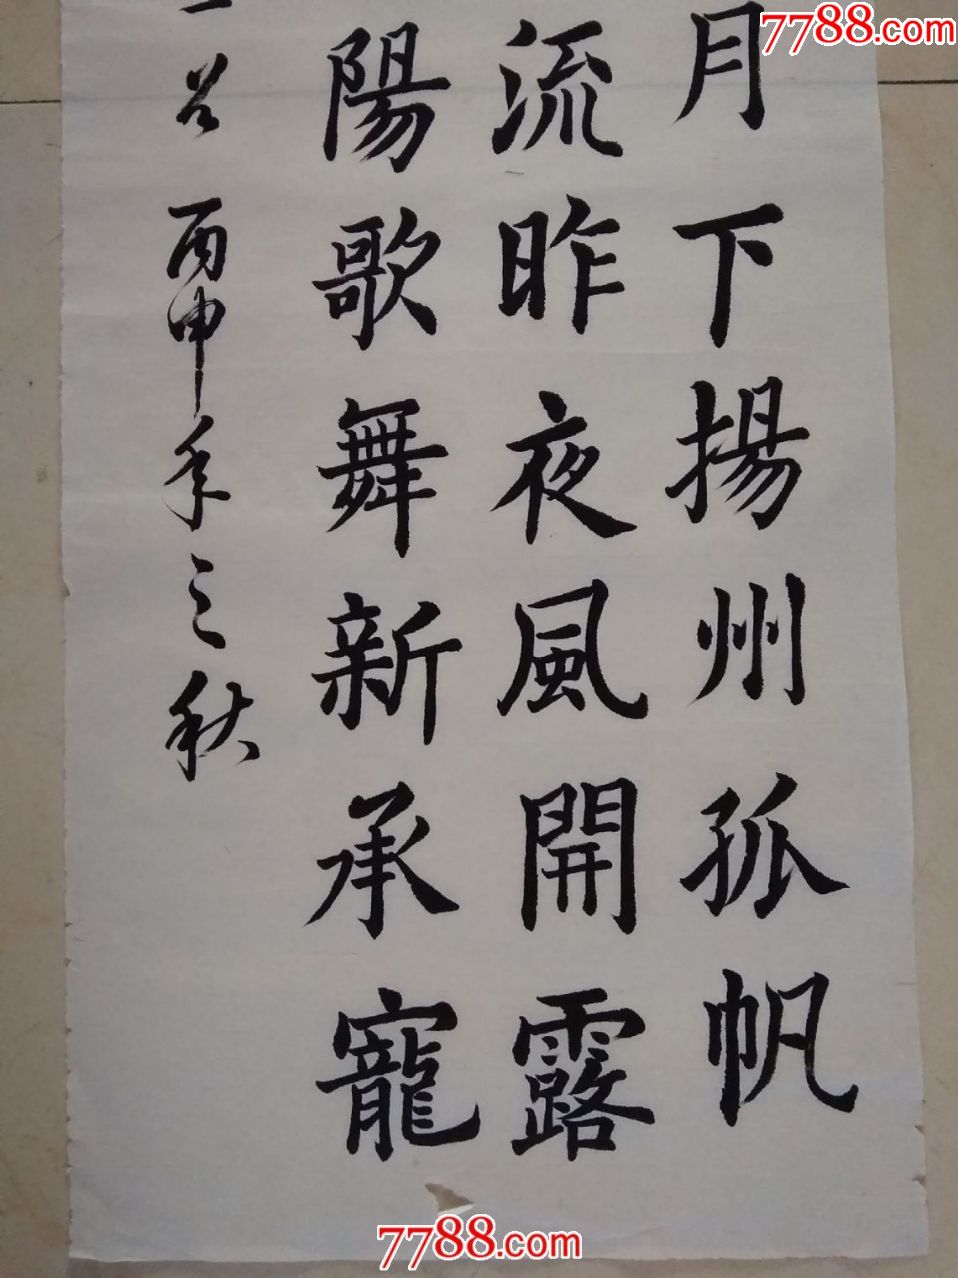 7788.com
月下揚州孤帆
流昨夜風開露
陽歌舞新承寵
丙申年之秋
7788.com